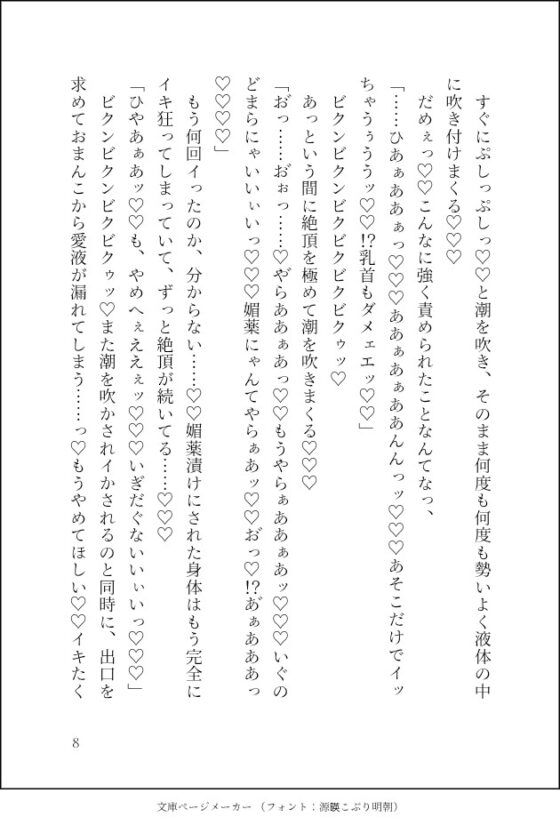 すぐにぷしっぷしっ♡♡と潮を吹き、そのまま何度も何度も勢いよく液体の中
に吹き付けまくる♡♡♡
だめぇっ♡♡こんなに強く責められたことなんてなっ、
「……ひあぁああぁっ♡♡♡ああぁあぁああんんっッ♡♡♡あそこだけでイッ
ちゃうぅううッ♡♡!?乳首もダメェエッ♡♡」
ビクンビクンビクビクビクビクゥッ♡
あっという間に絶頂を極めて潮を吹きまくる♡♡♡
「お゙っ……お゙ぉっ……♡や゙らああぁあっ♡♡もうやらぁああぁあッ♡♡♡いぐの
どまらにゃいいぃいっ♡♡♡媚薬にゃんてやらぁあッ♡♡お゙っ♡!?あ゙ぁあああっ
♡♡♡♡」
もう何回イったのか、分からない……♡♡媚薬漬けにされた身体はもう完全に
イキ狂ってしまっていて、ずっと絶頂が続いてる……♡♡♡
「ひやあぁあッ♡♡も、やめへぇええぇッ♡♡♡いぎだぐないいぃいっ♡♡♡」
ビクンビクンビクビクゥッ♡また潮を吹かされイかされるのと同時に、出口を
求めておまんこから愛液が漏れてしまう……っ♡もうやめてほしい♡♡イキたく
8
文庫ページメーカー（フォント：源暎こぶり明朝）